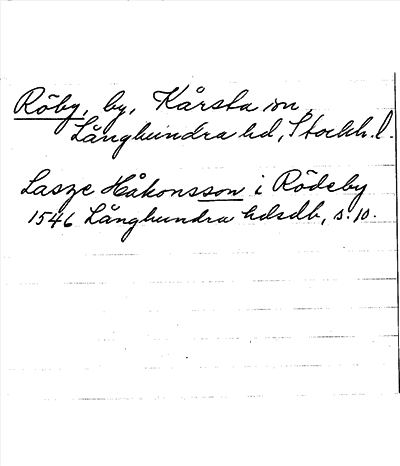 Röby, by, Kårsta sn,
Långhundra hd, Stockh. l.
Lasze Håkonsson i Rödeby
1546 Långhundra hdsdb, s. 10.